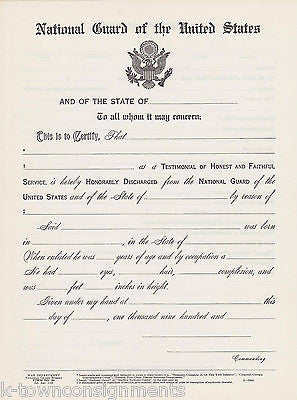 National Guard of the United States
AND OF THE STATE OF
To all whom it may concern:
This is to Certify, That
as a TESTIMONIAL OF HONEST AND FAITHFUL
SERVICE, is hereby HONORABLY DISCHARGED from the NATIONAL GUARD of the
UNITED STATES and of the State of by reason of
Said was born
in , in the State of
When enlisted he was years of age and by occupation a
He had eyes, hair, complexion, and
was feet inches in height.
Given under my hand at this
day of , one thousand nine hundred and
Commanding
WAR DEPARTMENT
k-townconsignments.com